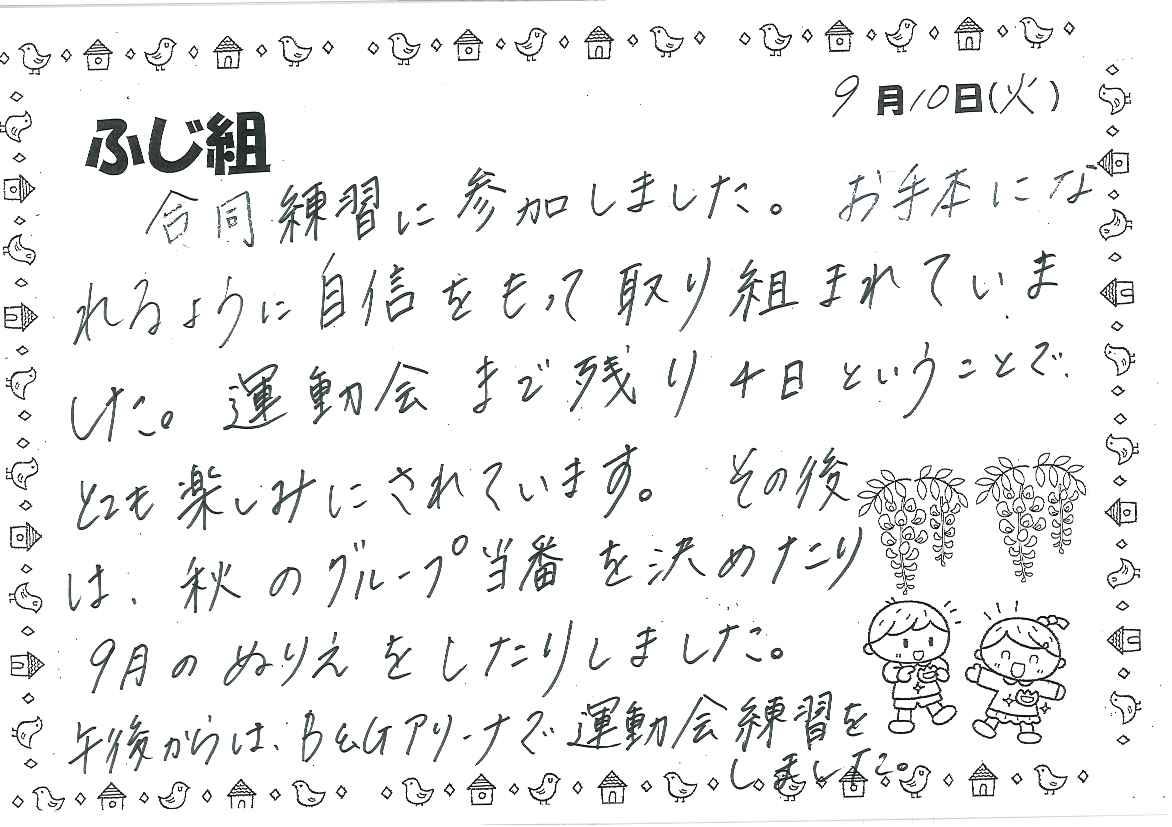 9月10日(火)
ふじ組
合同練習に参加しました。お手本にな
れるように自信をもって取り組まれていま
した。運動会まで残り4日ということで、
とても楽しみにされています。その後
は、秋のグループ当番を決めたり
9月のぬりえをしたりしました。
午後からは、B&Gアリーナで運動会練習を
しました。